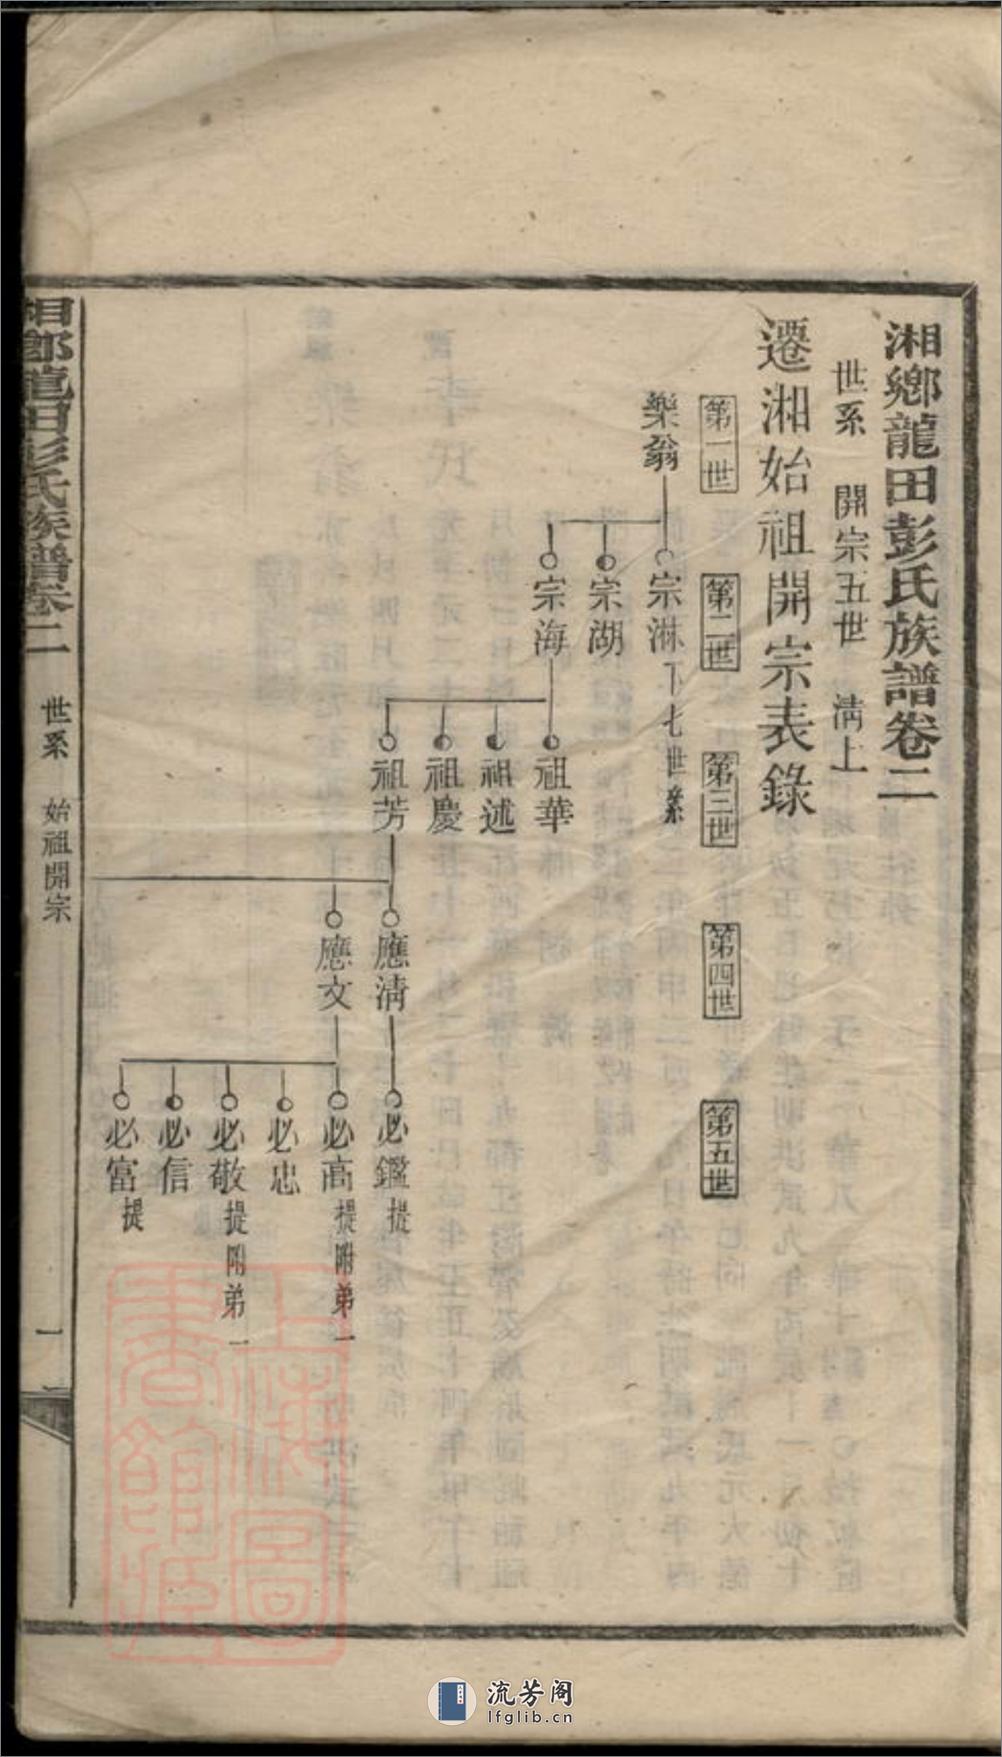 湘鄉龍田彭氏族譜卷二
世系 開宗五世 淸上
遷湘始祖開宗表錄
第一世
第二世
第三世
第四世
第五世
樂翁
宗淋下七世系
宗湖
宗海
祖華
祖述
祖慶
祖芳
應淸
應文
必鑑提
必高提附弟一
必忠
必敬提附弟一
必信
必富提
湘鄉龍田彭氏族譜卷二
世系 始祖開宗
一
上海圖書館藏
流芳阁
lfglib.cn